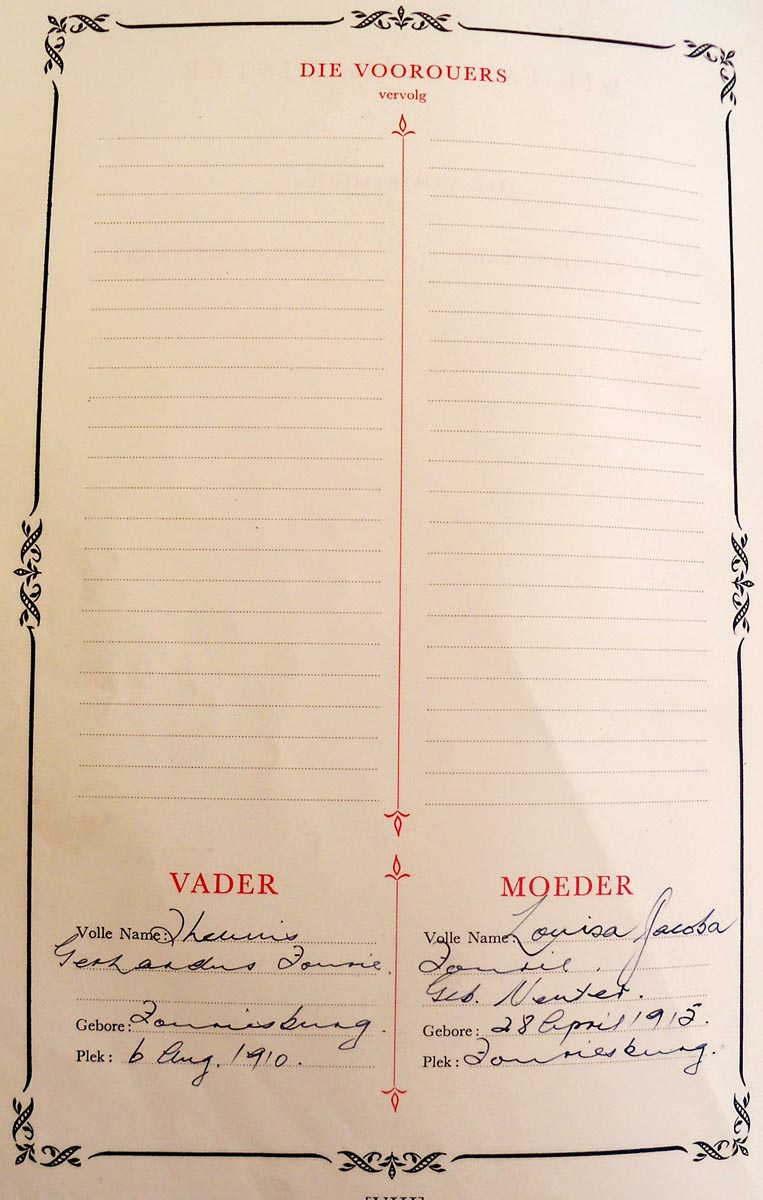 DIE VOOROUERS
vervolg
VADER
Volle Name: Theunis
Gerhardus Fourie.
Gebore: Fouriesburg.
Plek: 6 Aug. 1910.
MOEDER
Volle Name: Louisa Jacoba
Fourie.
Geb. Venter.
Gebore: 28 April 1915.
Plek: Fouriesburg.